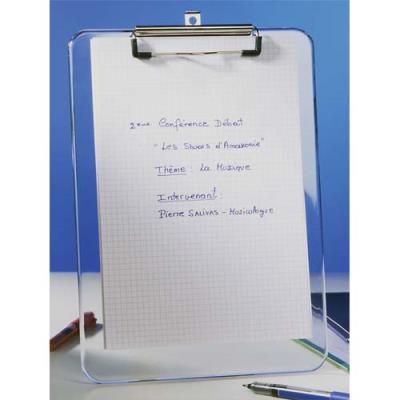 2ème Conférence Débat
"Les Shuars d'Amazonie"
Thème : La Musique
Intervenant :
Pierre SALIVAS - Musicologue